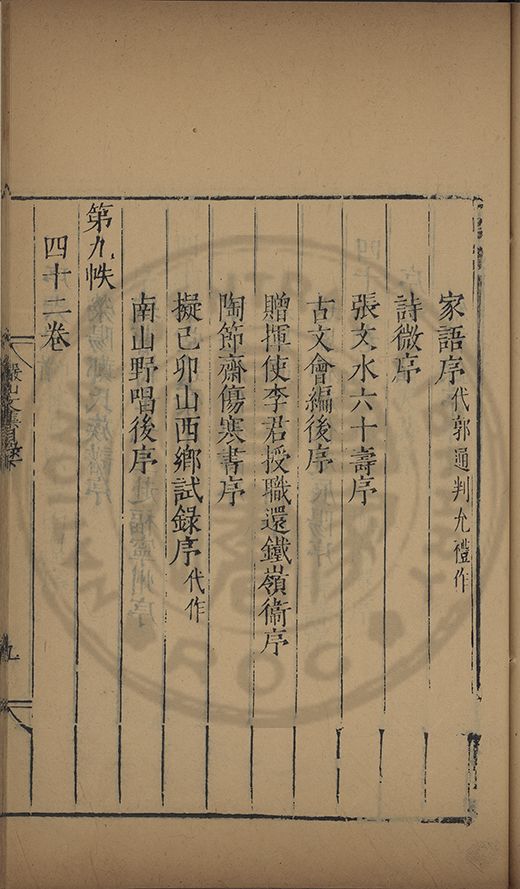 家語序代郭通判允禮作
詩微序
張文水六十壽序
古文會編後序
贈揮使李君授職還鐵嶺衞序
陶節齋傷寒書序
擬己卯山西鄉試錄序代作
南山野唱後序
第九帙
四十二卷
九